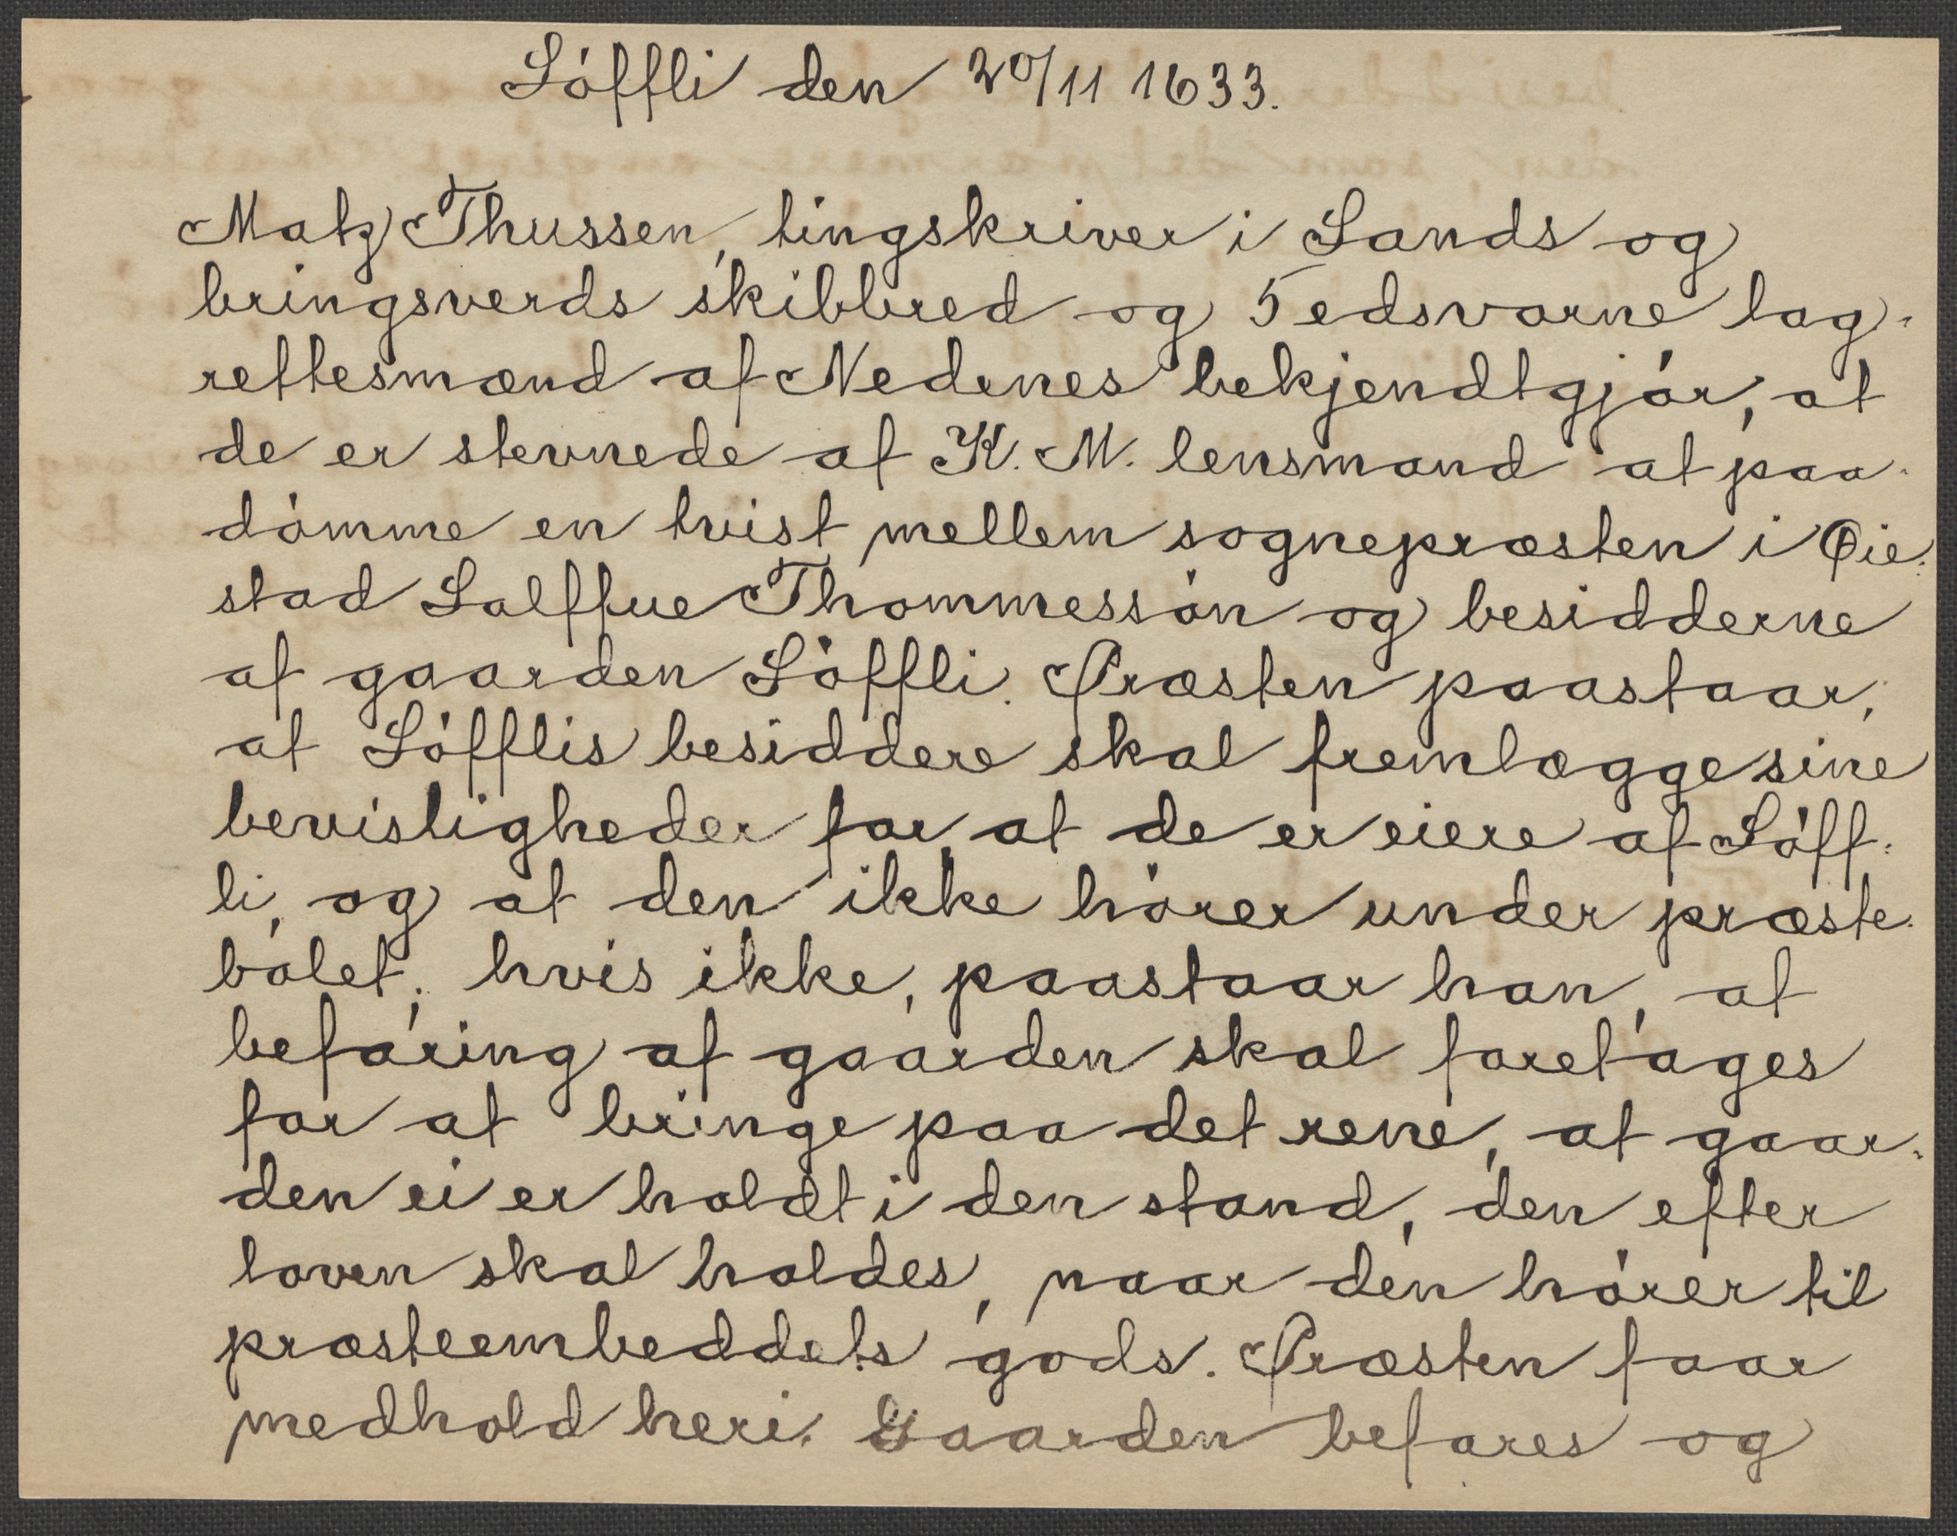 Löffli den 20/11 1633.
Matz Thussen, tingskriver i Sands og
bringsverds skibbred og 5 edsvorne lag-
rettesmænd af Nedenes bekjendtgjör, at
de er stevnede af K. M. lensmand at paa-
dömme en tvist mellem sognepræsten i Øie-
stad Salffue Thommessön og besidderne
af gaarden Löffli. Præsten paastaar,
at Löfflis besiddere skal fremlægge sine
bevisligheder for, at de er eiere af Löff-
li, og at den ikke hörer under præste-
bolet; hvis ikke, paastaar han, at
befaring af gaarden skal foretages
for at bringe paa det rene, at gaar-
den ei er holdt i den stand, den efter
loven skal holdes, naar den hörer til
præsteembeddets gods. Præsten faar
medhold heri. Gaarden befares og